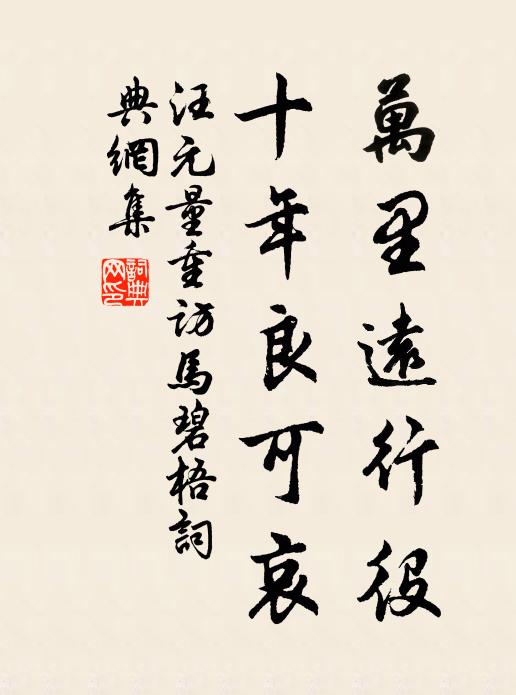 萬里遠行役
十年良可哀
汪元量重訪馬碧梧詞
典網集
詞典
网印